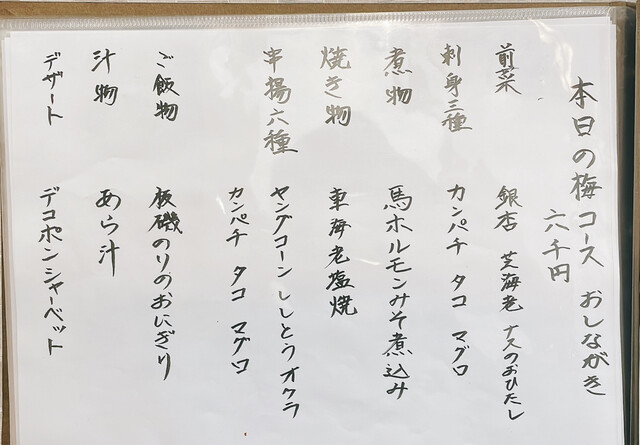 本日の梅コース おしながき
六千円
前菜 銀杏 芝海老 ナスのおひたし
刺身三種 カンパチ タコ マグロ
煮物 馬ホルモンみそ煮込み
焼き物 車海老塩焼
串揚六種 ヤングコーン ししとう オクラ
カンパチ タコ マグロ
ご飯物 板磯のりのおにぎり
汁物 あら汁
デザート デコポンシャーベット